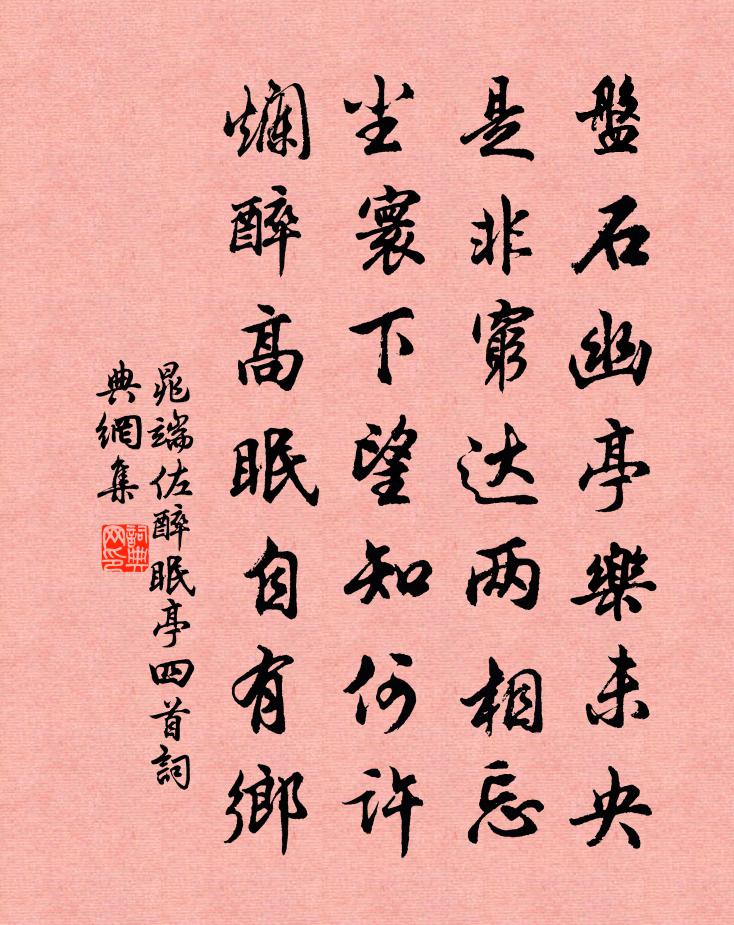 盤石幽亭樂未央
是非窮达两相忘
尘寰下望知何许
爛醉高眠自有鄉
晁端佐醉眠亭四首詞
典網集
詞典网印